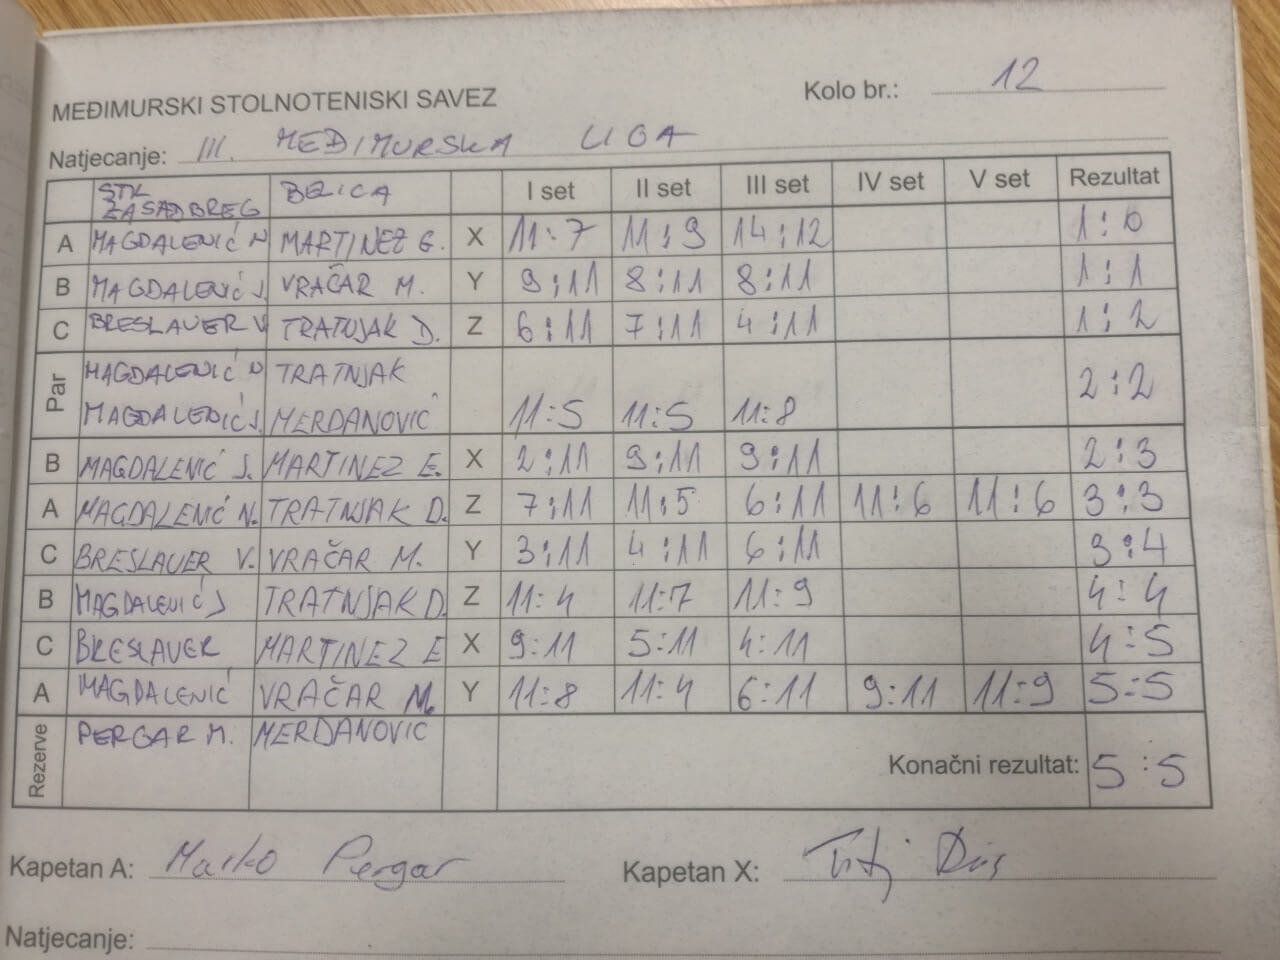 MEĐIMURSKI STOLNOTENISKI SAVEZ Kolo br.: 12
Natjecanje: III. MEĐIMURSKA LIGA
STK ZASADBREG BELICA I set II set III set IV set V set Rezultat
A MAGDALENIĆ N MARTINEZ E. X 11:7 11:9 14:12 1:0
B MAGDALENIĆ J. VRAČAR M. Y 9:11 8:11 8:11 1:1
C BRESLAUER V. TRATNJAK D. Z 6:11 7:11 4:11 1:2
Par MAGDALENIĆ N TRATNJAK 2:2
MAGDALENIĆ J. MERDANOVIĆ 11:5 11:5 11:8
B MAGDALENIĆ J. MARTINEZ E. X 2:11 9:11 9:11 2:3
A MAGDALENIĆ N. TRATNJAK D. Z 7:11 11:5 6:11 11:6 11:6 3:3
C BRESLAUER V. VRAČAR M. Y 3:11 4:11 6:11 3:4
B MAGDALENIĆ J TRATNJAK D. Z 11:4 11:7 11:9 4:4
C BRESLAUER MARTINEZ E X 9:11 5:11 4:11 4:5
A MAGDALENIĆ VRAČAR M. Y 11:8 11:4 6:11 9:11 11:9 5:5
Rezerve PERGAR M. MERDANOVIĆ
Konačni rezultat: 5:5
Kapetan A: Marko Pergar Kapetan X:
Natjecanje: